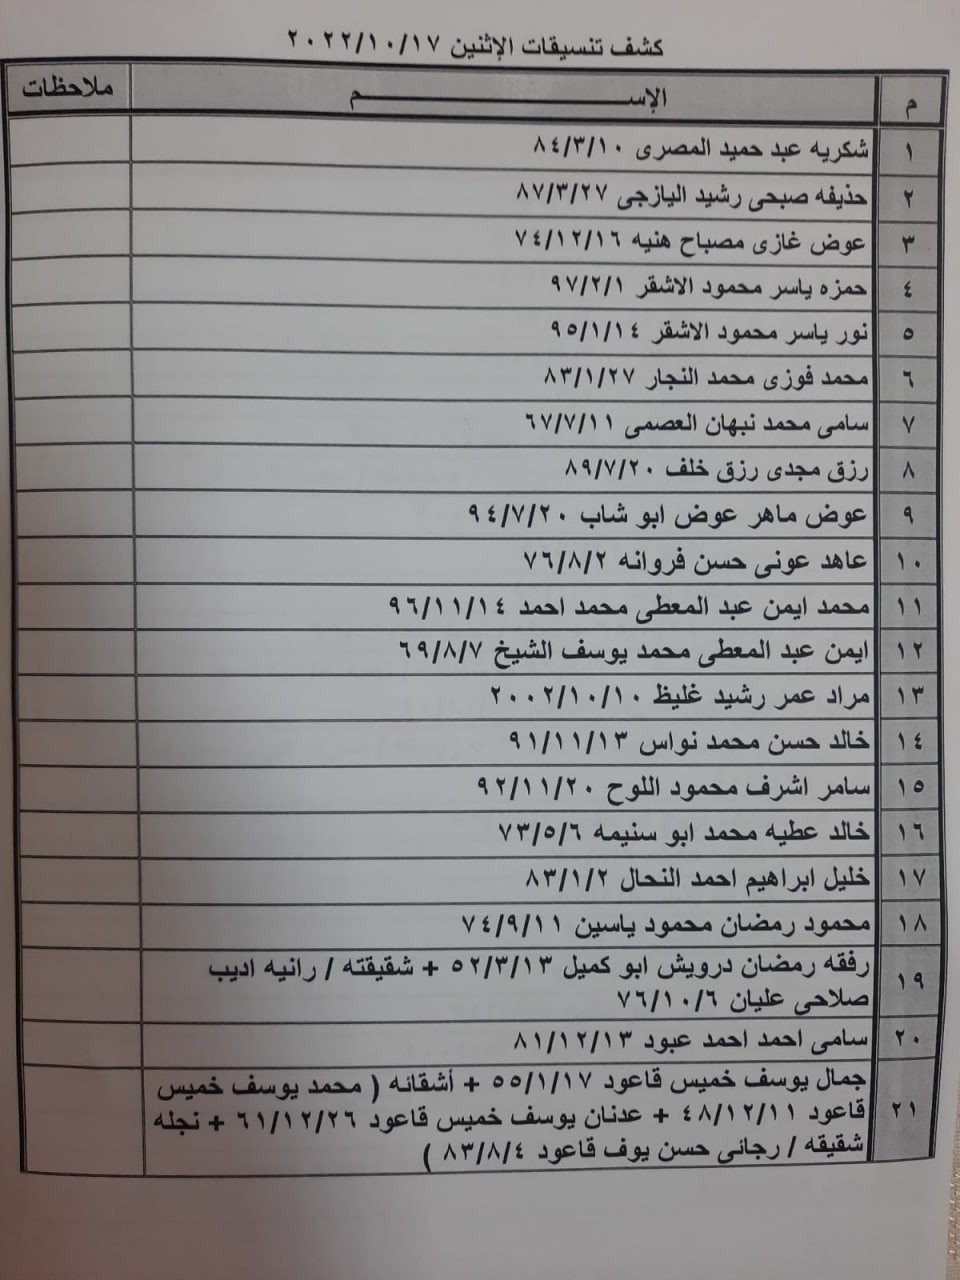 كشف تنسيقات الإثنين ٢٠٢٢/١٠/١٧
م الإســـــــــــم ملاحظات
١ شكريه عبد حميد المصرى ٨٤/٣/١٠
٢ حذيفه صبحى رشيد اليازجى ٨٧/٣/٢٧
٣ عوض غازى مصباح هنيه ٧٤/١٢/١٦
٤ حمزه ياسر محمود الاشقر ٩٧/٢/١
٥ نور ياسر محمود الاشقر ٩٥/١/١٤
٦ محمد فوزى محمد النجار ٨٣/١/٢٧
٧ سامى محمد نبهان العصمى ٦٧/٧/١١
٨ رزق مجدى رزق خلف ٨٩/٧/٢٠
٩ عوض ماهر عوض ابو شاب ٩٤/٧/٢٠
١٠ عاهد عونى حسن فروانه ٧٦/٨/٢
١١ محمد ايمن عبد المعطى محمد احمد ٩٦/١١/١٤
١٢ ايمن عبد المعطى محمد يوسف الشيخ ٦٩/٨/٧
١٣ مراد عمر رشيد غليظ ٢٠٠٢/١٠/١٠
١٤ خالد حسن محمد نواس ٩١/١١/١٣
١٥ سامر اشرف محمود اللوح ٩٢/١١/٢٠
١٦ خالد عطيه محمد ابو سنيمه ٧٣/٥/٦
١٧ خليل ابراهيم احمد النحال ٨٣/١/٢
١٨ محمود رمضان محمود ياسين ٧٤/٩/١١
١٩ رفقه رمضان درويش ابو كميل ٥٢/٣/١٣ + شقيقته / رانيه اديب
صلاحى عليان ٧٦/١٠/٦
٢٠ سامى احمد احمد عبود ٨١/١٢/١٣
٢١ جمال يوسف خميس قاعود ٥٥/١/١٧ + أشقائه ( محمد يوسف خميس
قاعود ٤٨/١٢/١١ + عدنان يوسف خميس قاعود ٦١/١٢/٢٦ + نجله
شقيقه / رجائى حسن يوف قاعود ٨٣/٨/٤ )